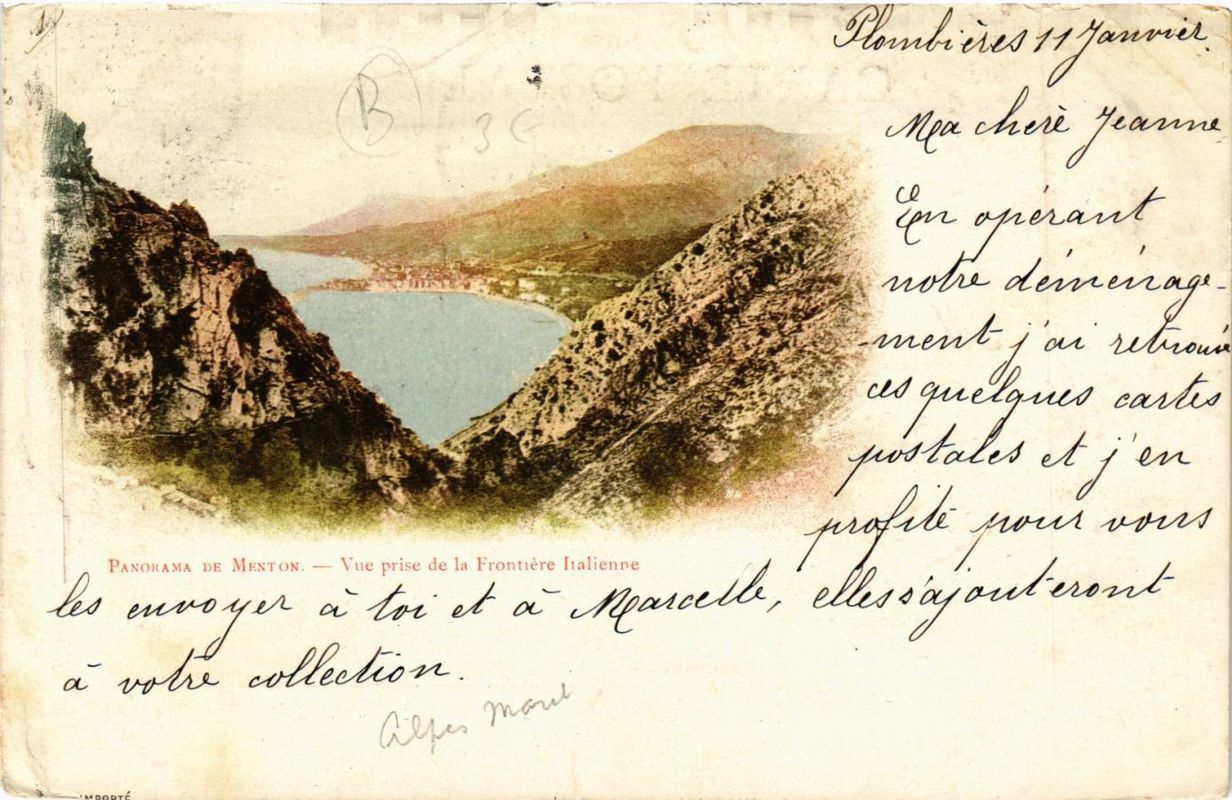 Plombières 11 Janvier
Ma cherè Jeanne
En opérant
notre déménage-
ment j'ai retrouvé
ces quelques cartes
postales et j'en
profite pour vous
les envoyer à toi et à Marcelle, elles s'ajouteront
à votre collection.
PANORAMA DE MENTON. — Vue prise de la Frontière Italienne
B
3 €
Alpes Marit
IMPORTÉ